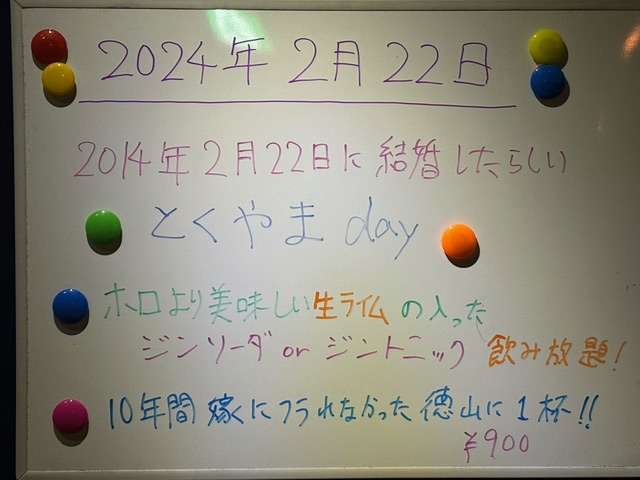 2024年2月22日
2014年2月22日に結婚したらしい
とくやま day
ホロより美味しい生ライムの入った
ジンソーダ or ジントニック 飲み放題!
10年間 嫁にフラれなかった 徳山に1杯!!
¥900